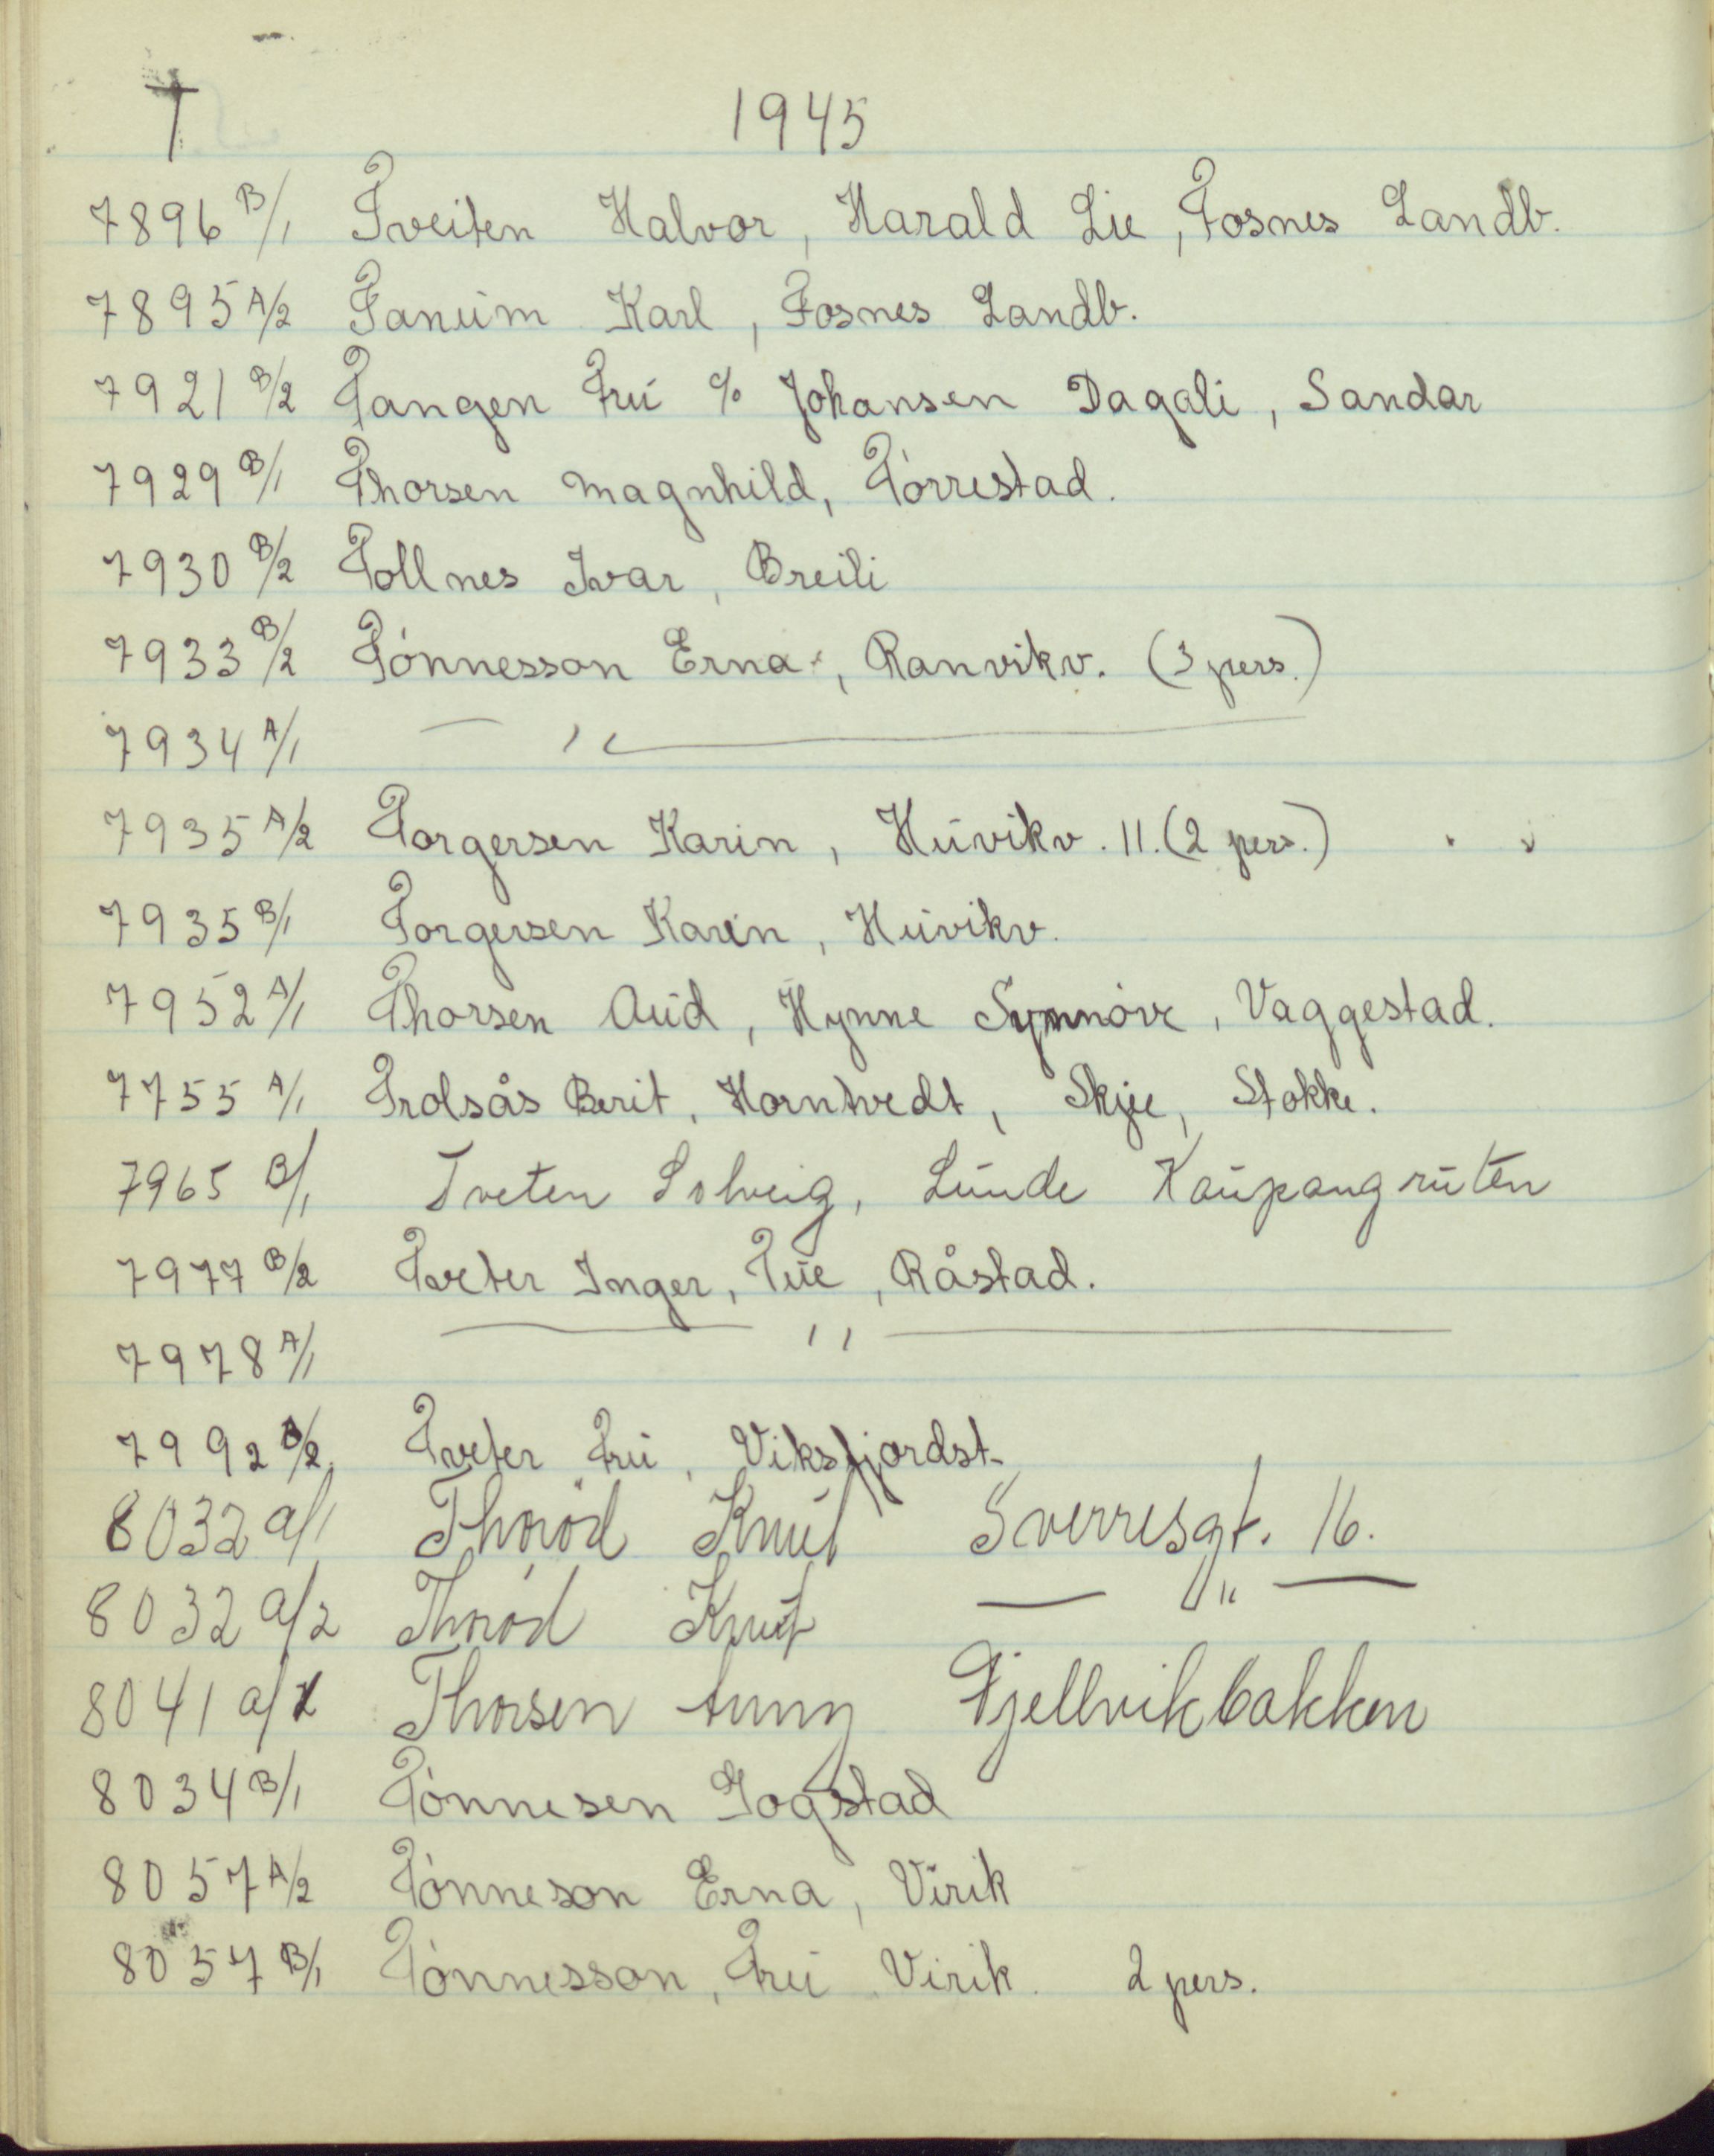 T 1945
7896 B/1 Tveiten Halvor, Harald Lie, Fosnes Landb.
7895 A/2 Tanum Karl, Fosnes Landb.
7921 B/2 Tangen Fru c/o Johansen Dagali, Sandar
7929 B/1 Thorsen Magnhild, Törrestad.
7930 B/2 Tollnes Ivar, Breili
7933 B/2 Tönnesson Erna, Ranvikv. (3 pers.)
7934 A/1 — " —
7935 A/2 Torgersen Karin, Huvikv. 11. (2 pers.)
7935 B/1 Torgersen Karin, Huvikv.
7952 A/1 Thorsen Aud, Hynne Synnöve, Vaggestad.
7755 A/1 Trolsås Berit, Horntvedt, Skjee, Stokke.
7965 B/1 Tveten Solveig, Lunde Kaupangruten
7977 B/2 Tveter Inger, Tue, Råstad.
7978 A/1 — " —
7992 B/2 Tveter Fru, Viksfjordst.
8032 a/1 Thoröd Knut Sverresgt. 16.
8032 a/2 Thoröd Knut — " —
8041 a/1 Thorsen Anny Fjellvikbakken
8034 B/1 Tönnesen Gogstad
8057 A/2 Tönneson Erna, Virik
8057 B/1 Tönnesson, Fru Virik. 2 pers.